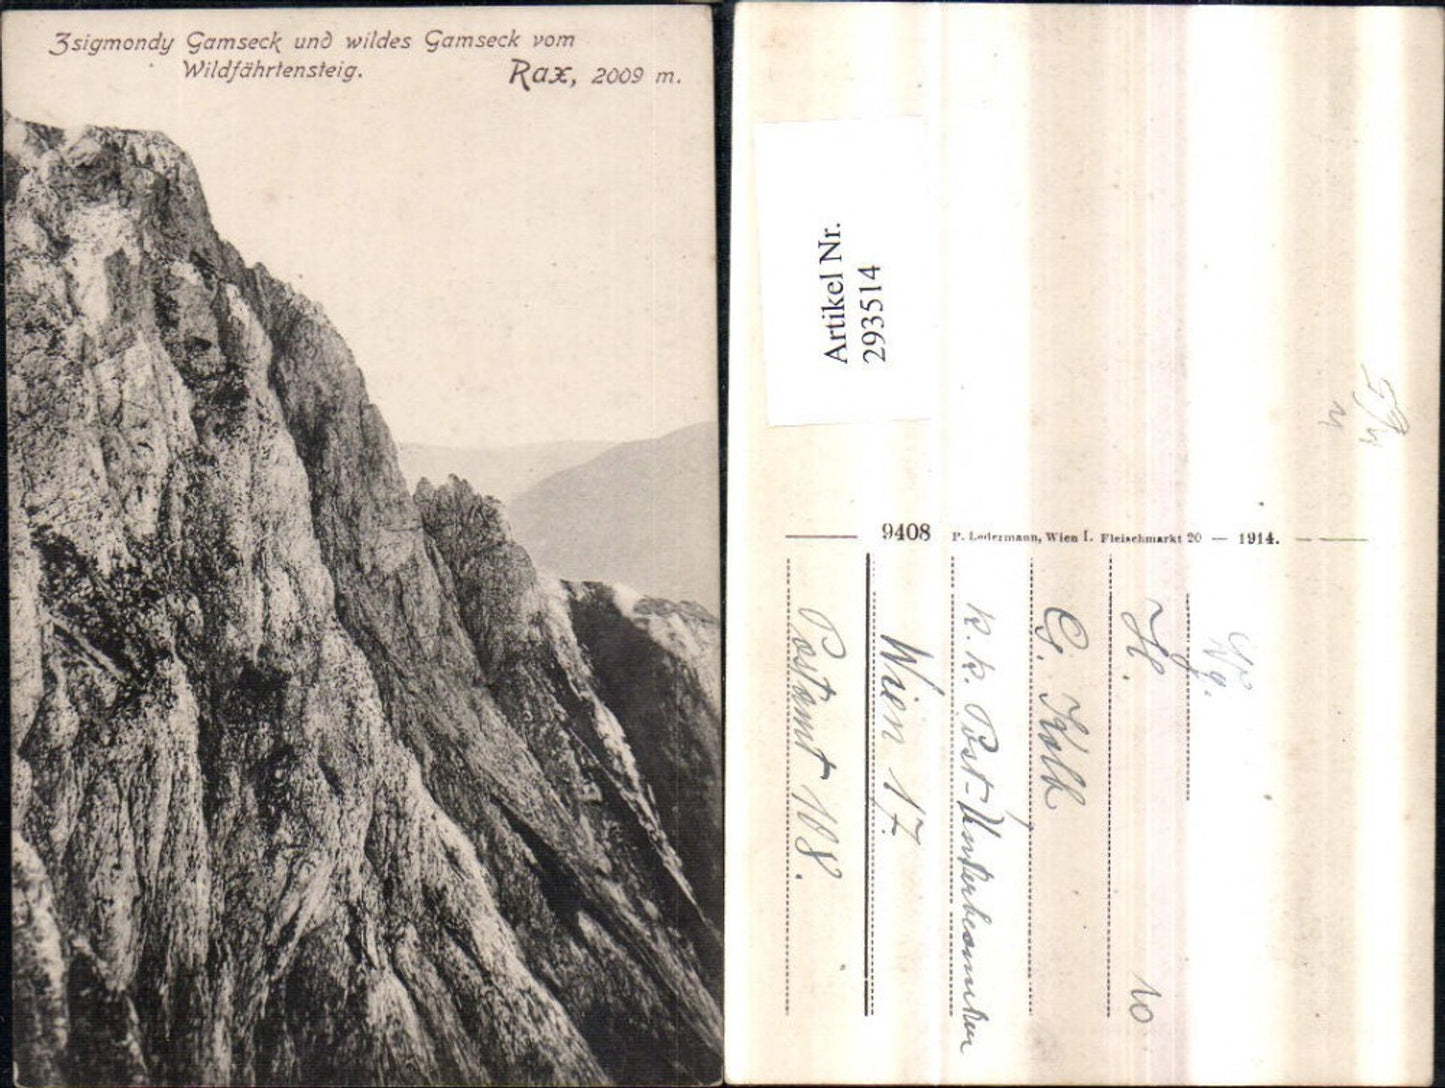 Zsigmondy Gamseck und wildes Gamseck vom
Wildfährtensteig. Rax, 2009 m.
Artikel Nr.
293514
9408 P. Ledermann, Wien I. Fleischmarkt 20 — 1914.
H.
G. Kolb
k. k. Post-Unterbeamter
Wien 17.
Postamt 108.